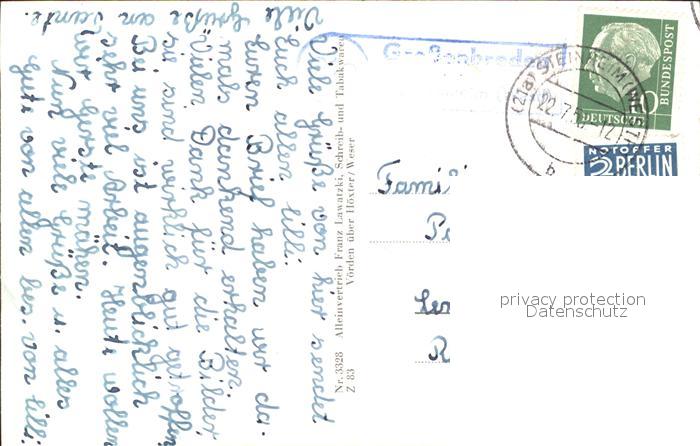 Viele Grüße von hier sendet
Euch allen Lilli.
Euren Brief haben wir da-
mals dankend erhalten.
Vielen Dank für die Bilder,
sie sind wirklich gut getroffen.
Bei uns ist augenblicklich
sehr viel Arbeit. Heute wollen
wir Gerste mähen.
Nun viele Grüße u. alles
Gute von allen bes. von Lilli.
Viele Grüße an Tante.
Nr. 3328 Alleinvertrieb Franz Lawatzki, Schreib- und Tabakwaren
Z 83 Vörden über Höxter/Weser
Großenbreden
(21a) STEINHEIM (WESTF)
22.7.5
b
DEUTSCHE
BUNDESPOST
10
NOTOPFER
2 BERLIN
Famil
privacy protection
Datenschutz